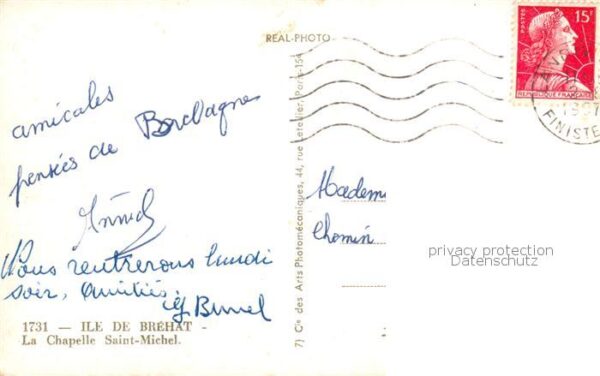 REAL-PHOTO
POSTES
15F
REPUBLIQUE FRANÇAISE
1957
FINISTE
amicales
pensées de Bretagne
Vous rentrerons lundi
soir, amitiés
Brunel
1731 — ILE DE BRÉHAT -
La Chapelle Saint-Michel.
7) Cie des Arts Photomécaniques, 44, rue Letellier, Paris-15e
Madem
Chemin
privacy protection
Datenschutz